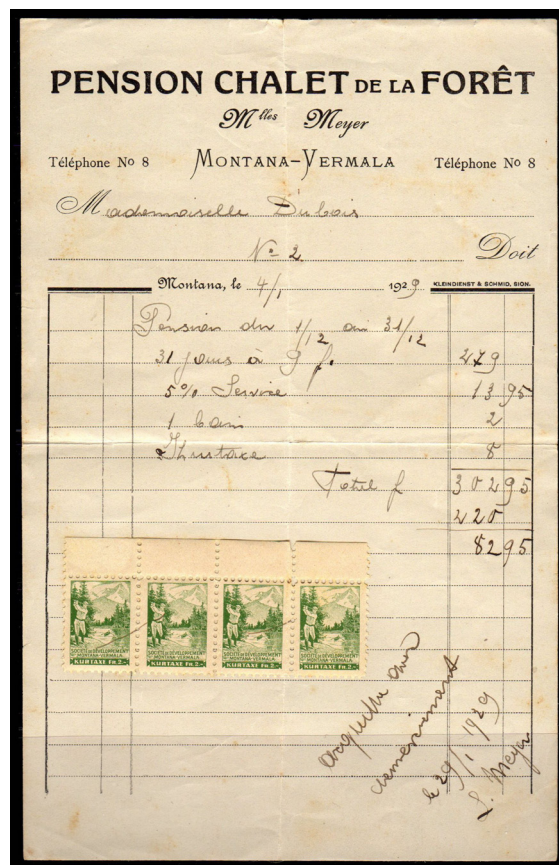 PENSION CHALET DE LA FORÊT
Mlles Meyer
Téléphone No 8 MONTANA-VERMALA Téléphone No 8
Mademoiselle Dubois
No 2 Doit
Montana, le 4/1 1929 KLEINDIENST & SCHMID, SION.
Pension du 1/12 au 31/12
31 jours à 9 f. 279
5% Service 13 95
1 bain 2
Kurtaxe 8
Total f 302 95
220
82 95
SOCIÉTÉ DE DÉVELOPPEMENT MONTANA-VERMALA KURTAXE FR. 2.-
SOCIÉTÉ DE DÉVELOPPEMENT MONTANA-VERMALA KURTAXE FR. 2.-
SOCIÉTÉ DE DÉVELOPPEMENT MONTANA-VERMALA KURTAXE FR. 2.-
SOCIÉTÉ DE DÉVELOPPEMENT MONTANA-VERMALA KURTAXE FR. 2.-
acquitté avec
remerciement
le 29/1 1929
S. Meyer